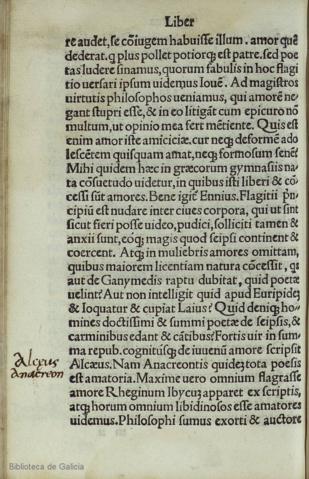 Liber
re audet, se cōiugem habuisse illum. amor quē
dederat. q̃ plus pollet potiorq; est patre. sed poe
tas ludere sinamus, quorum fabulis in hoc flagi
tio uersari ipsum uidemus Iouē. Ad magistros
uirtutis philosophos ueniamus, qui amorē ne,
gant stupri esse, & in eo litigāt cum epicuro nō
multum, ut opinio mea fert mētiente. Quis est
enim amor iste amiciciæ. cur neq; deformē ado
lescētem quisquam amat, neq; formosum senē?
Mihi quidem hæc in græcorum gymnasiis na,
ta cōsuetudo uidetur, in quibus isti liberi & cō,
cessi sūt amores. Bene igit̃ Ennius. Flagitii p̃n,
cipiū est nudare inter ciues corpora, qui ut sint
sicut fieri posse uideo, pudici, solliciti tamen &
anxii sunt, eoq; magis quod seipsi continent &
coercent. Atq; in muliebris amores omittam,
quibus maiorem licentiam natura cōcessit, q̃s
aut de Ganymedis raptu dubitat, quid poetæ
uelint? Aut non intelligit quid apud Euripidē
& loquatur & cupiat Laius? Quid deniq; ho,
mines doctissimi & summi poetæ de seipsis, &
carminibus edant & cātibus? Fortis uir in sum,
ma repub. cognitus q̃; de iuuenū amore scripsit
Alcæus. Nam Anacreontis quidē tota poesis
est amatoria. Maxime uero omnium flagrasse
amore Rheginum Ibycū apparet ex scriptis,
atq; horum omnium libidinosos esse amatores
uidemus. Philosophi sumus exorti & auctore
Alcæus
Anacreon
Biblioteca de Galicia